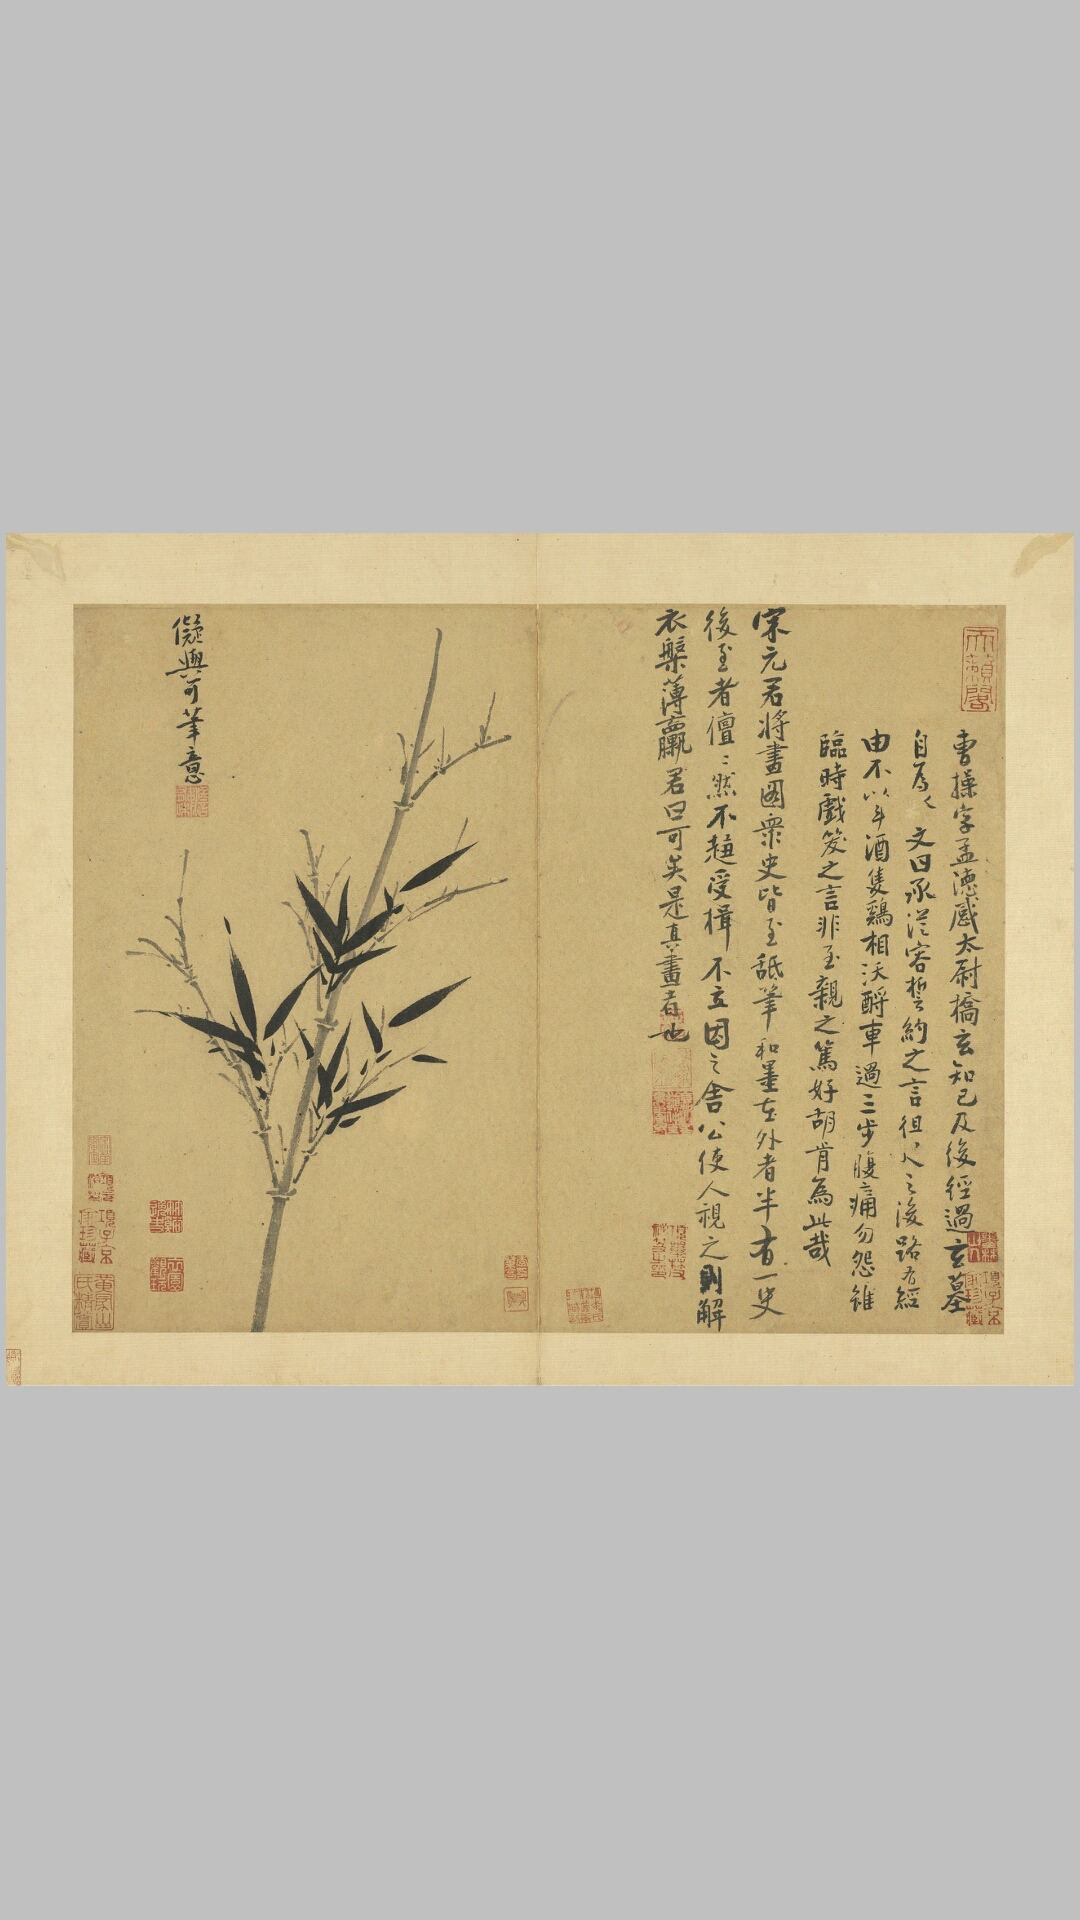 曹操字孟德感太尉橋玄知己及後徑過玄墓
自為文曰承從容誓約之言徂之後路有經
由不以斗酒隻鷄相沃酹車過三步腹痛勿怨雖
臨時戲笑之言非至親之篤好胡肯為此哉
宋元君將畫圖衆史皆至舐筆和墨在外者半有一史
後至者儃〻然不趨受楫不立因之舍公使人視之則解
衣槃薄羸君曰可矣是真畫者也
儗與可筆意
天籟閣
項子京家珍藏